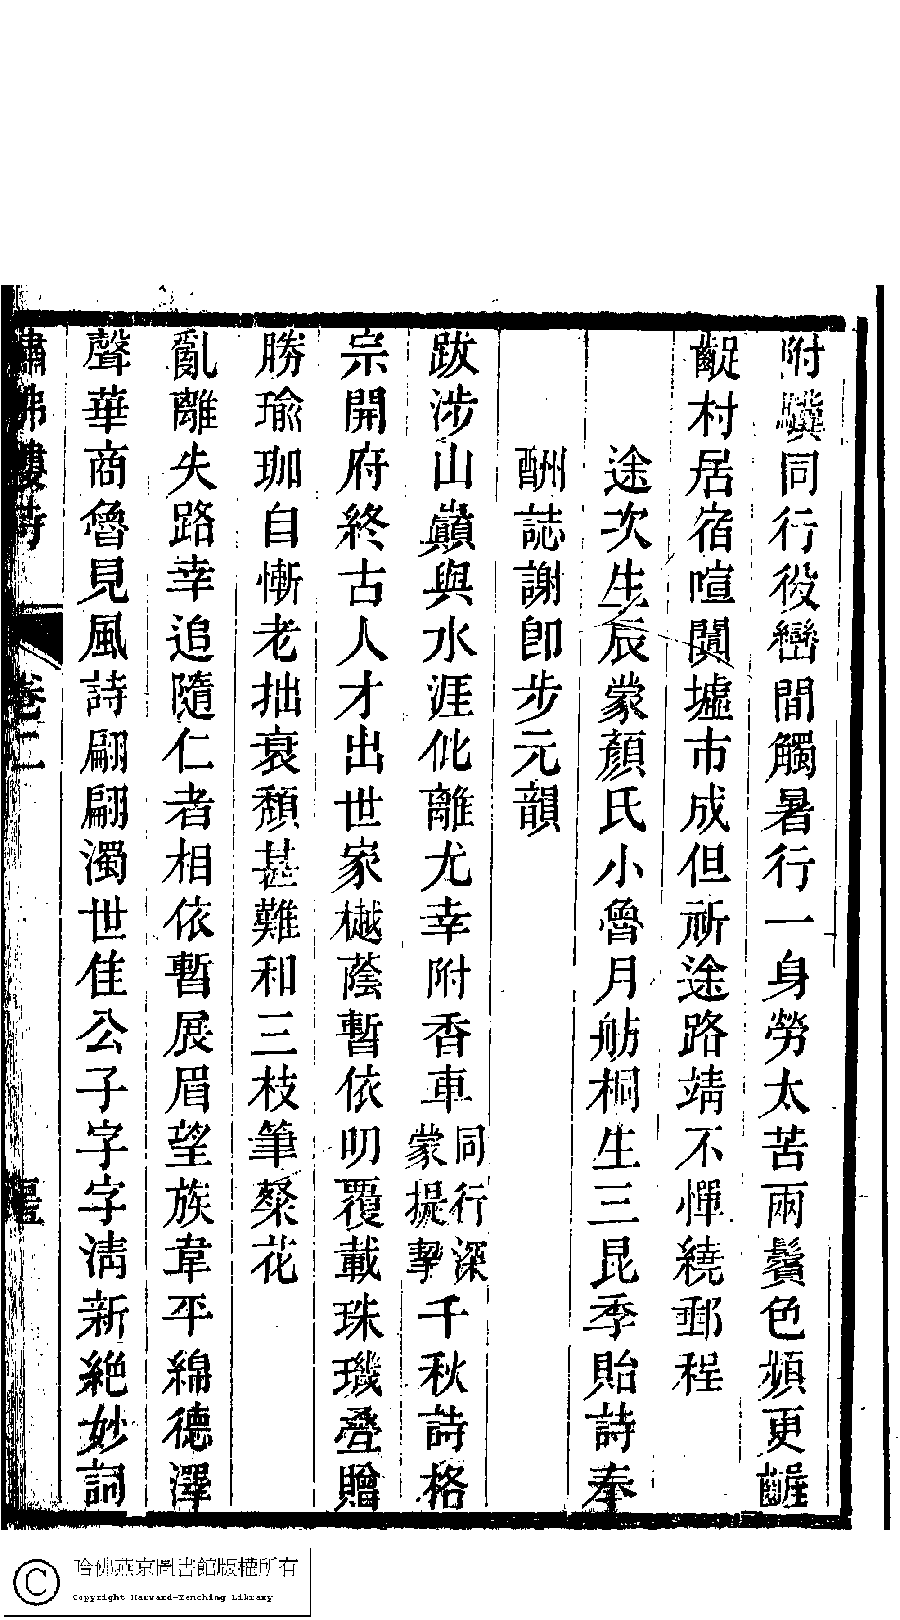 附驥同行役巒間觸暑行一身勞太苦兩鬢色頻更齷
齪村居宿喧闐墟市成但祈途路靖不憚繞郵程
途次生辰蒙顏氏小魯月舫桐生三昆季貽詩奉
酬誌謝卽步元韻
跋涉山巔與水涯仳離尤幸附香車同行深蒙提挈千秋詩格
宗開府終古人才出世家樾蔭暫依叨覆載珠璣疊贈
勝瑜珈自慚老拙衰頹甚難和三枝筆粲花
亂離失路幸追隨仁者相依暫展眉望族韋平綿德澤
聲華商魯見風詩翩翩濁世佳公子字字清新絕妙詞
繡佛樓詩 卷二
哈佛燕京圖書館版權所有
Copyright Harvard-Yenching Library